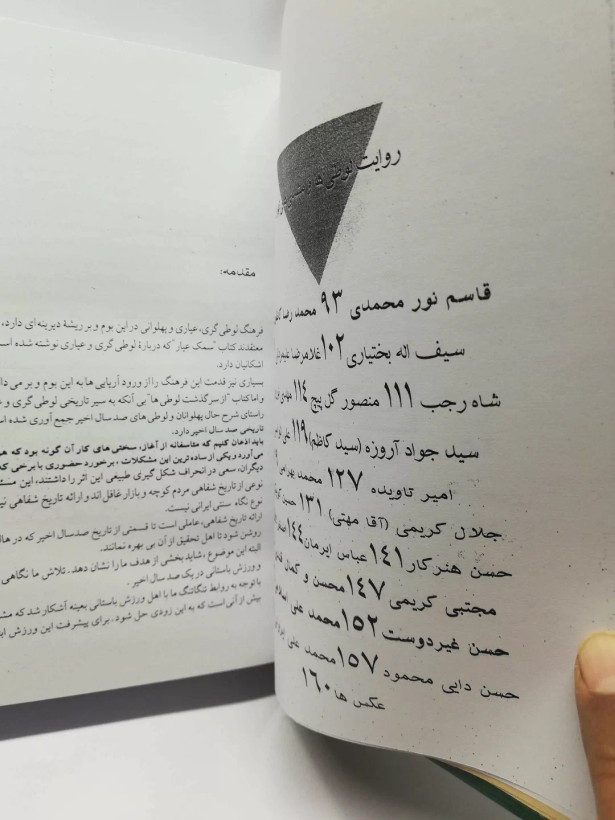 روایت لوطی ها و
قاسم نور محمدی ۹۳ محمد رضا
سیف اله بختیاری ۱۰۲ غلامرضا
شاه رجب ۱۱۱ منصور گل پیچ ۱۱۴ مهدی
سید جواد آروزه (سید کاظم) ۱۱۹ علی
امیر تاویده ۱۲۷ محمد بهرامی
جلال کریمی (آقا مهتی) ۱۳۱ حسین
حسن هنرکار ۱۴۱ عباس ایرمان ۱۴۴
مجتبی کریمی ۱۴۷ محسن و کمال
حسن غیردوست ۱۵۲ محمد علی
حسن دایی محمود ۱۵۷ محمد علی
عکس ها ۱۶۰
مقدمه:
فرهنگ لوطی گری، عیاری و پهلوانی در این بوم و بر ریشهٔ دیرینه ای دارد،
معتقدند کتاب "سمک عیار" که دربارهٔ لوطی گری و عیاری نوشته شده
اشکانیان دارد.
بسیاری نیز قدمت این فرهنگ را از ورود آریایی ها به این بوم و بر می
واما کتاب "از سرگذشت لوطی ها" بی آنکه به سیر تاریخی لوطی گری و
راستای شرح حال پهلوانان و لوطی های صد سال اخیر جمع آوری شده
تاریخی صد سال اخیر دارد.
باید اذعان کنیم که متاسفانه از آغاز، سختی های کار آن گونه بود که
می آورد و یکی از ساده ترین این مشکلات، برخورد حضوری با برخی
دیگران، سعی در انحراف شکل گیری طبیعی این اثر را داشتند، این
نوعی از تاریخ شفاهی مردم کوچه و بازار غافل اند و ارائه تاریخ شفاهی
نوع نگاه سنتی ایرانی نیست.
ارائه تاریخ شفاهی، عاملی است تا قسمتی از تاریخ صد سال اخیر که در
روشن شود تا اهل تحقیق از آن بی بهره نمانند.
البته این موضوع، شاید بخشی از هدف ما را نشان دهد. تلاش ما نگاهی
و ورزش باستانی در یک صد سال اخیر.
با توجه به روابط تنگاتنگ ما با اهل ورزش باستانی بعینه آشکار شد که
بیش از آنی است که به این زودی حل شود. برای پیشرفت این ورزش